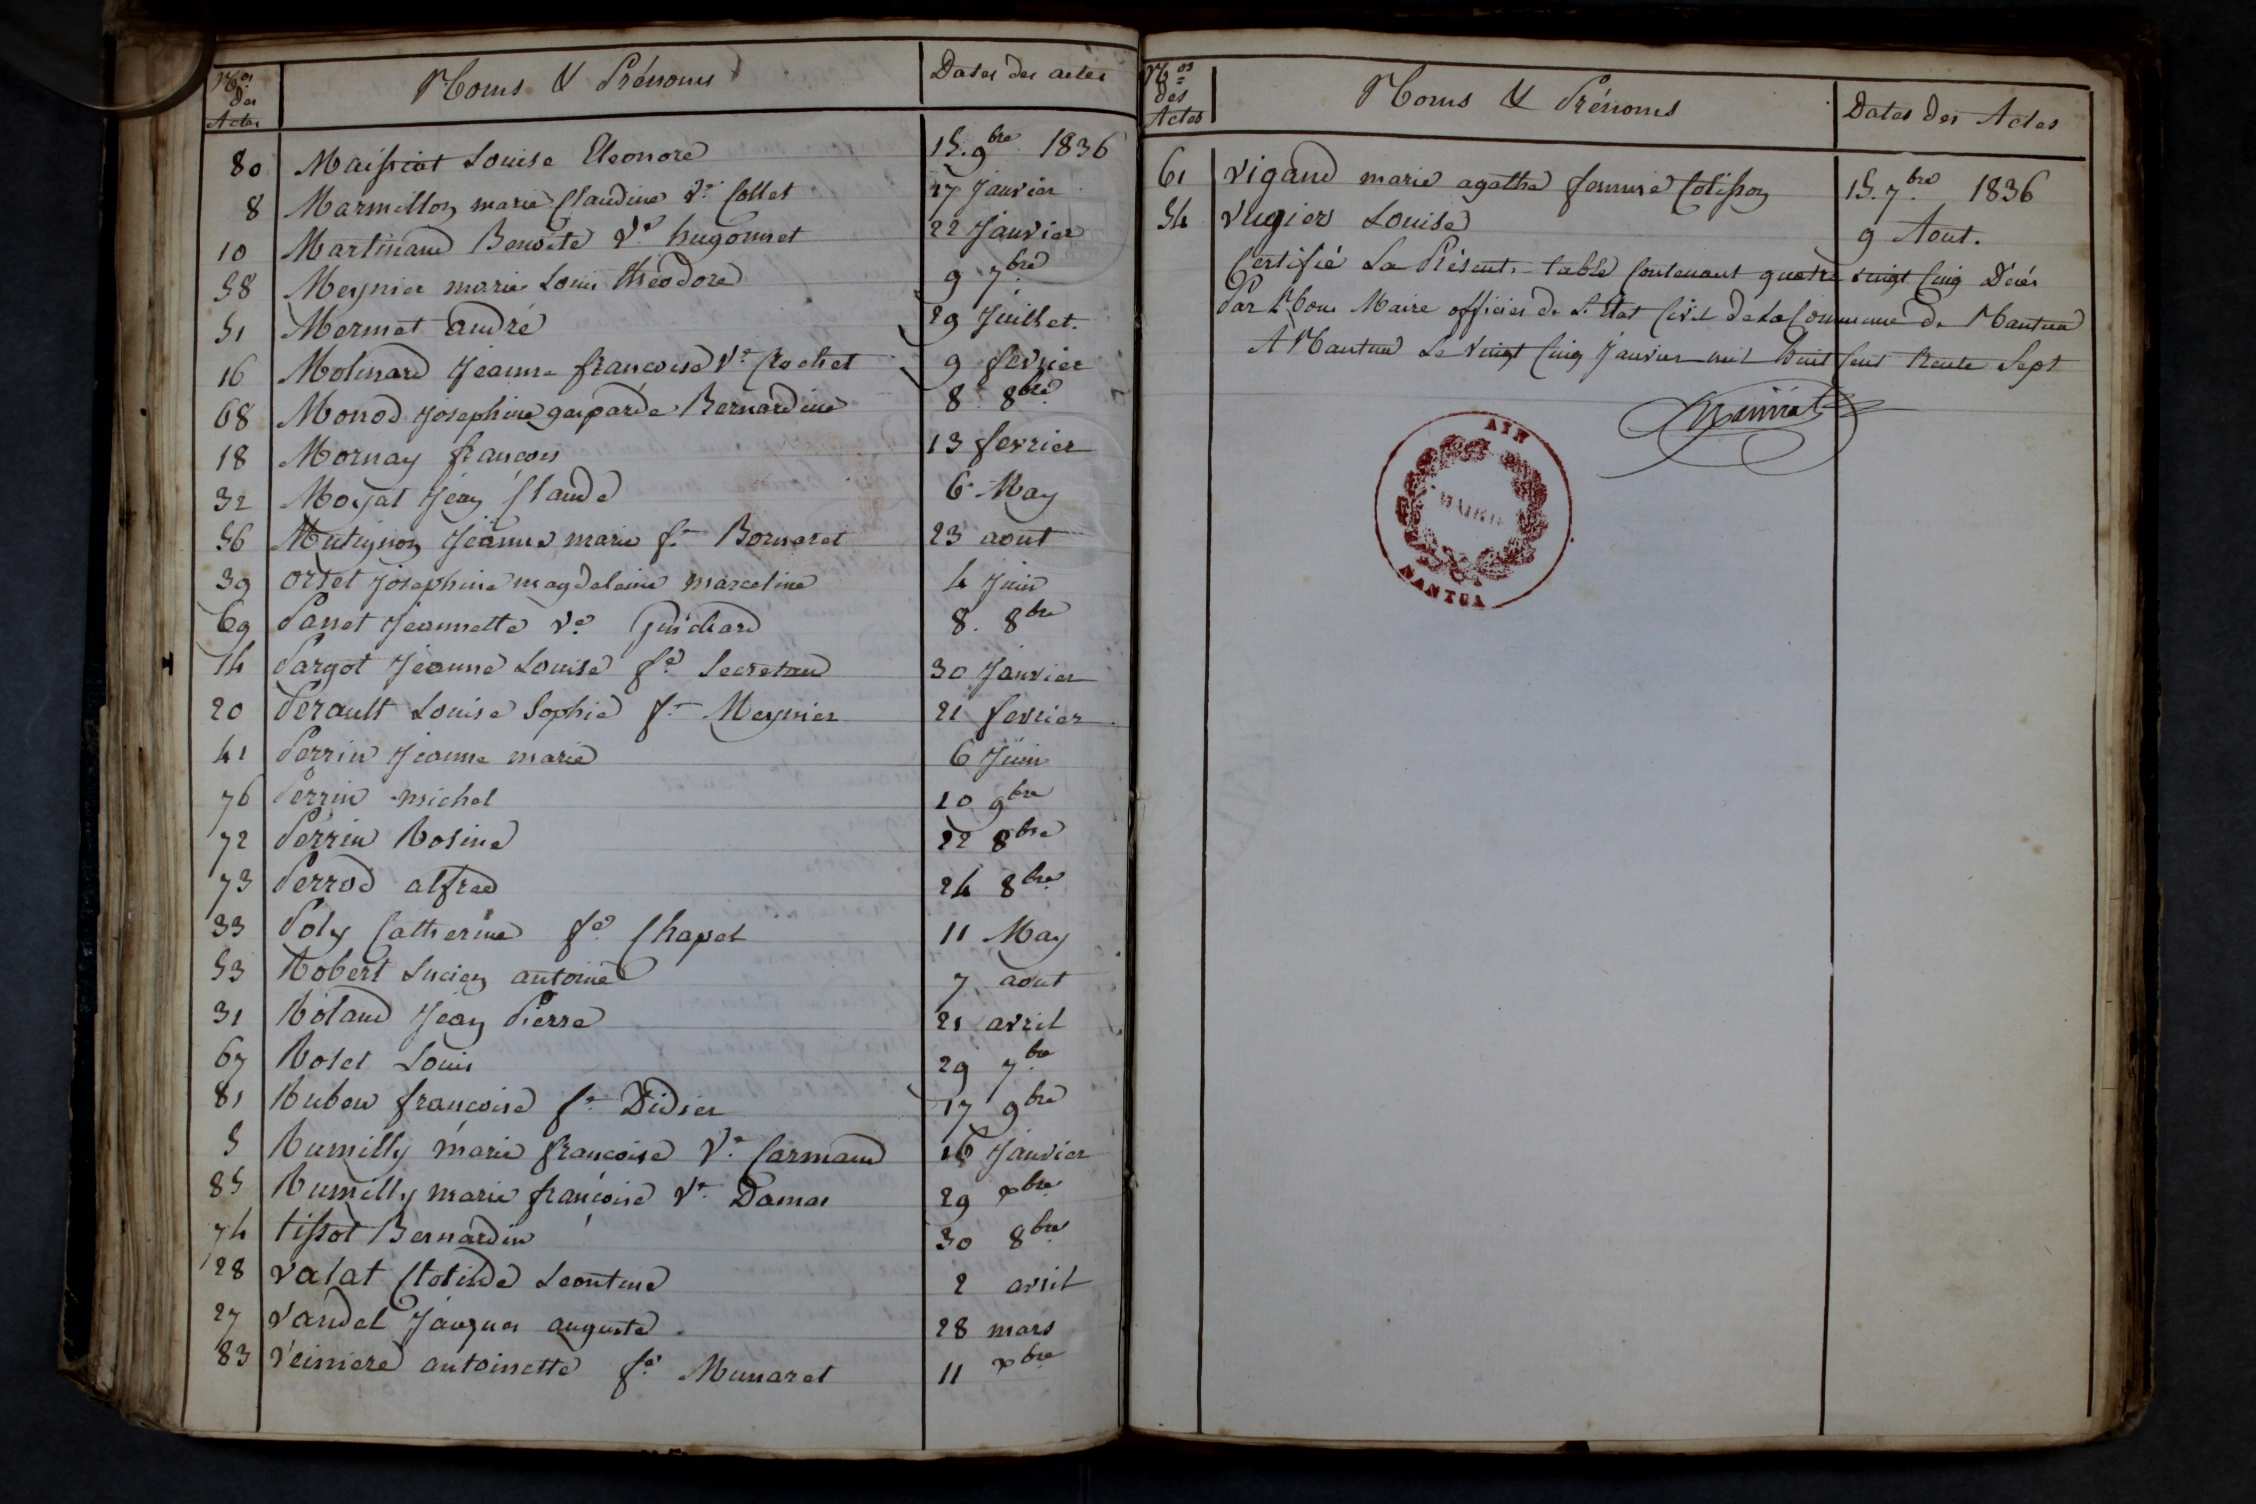 Nos des Actes
Noms & Prénoms
Dates des actes
80 Maissiat Louise Eleonore 15. 9bre 1836
8 Marmillon marie Claudine Ve Collet 17 Janvier
10 Martinand Benoite Ve hugonnet 22 Janvier
58 Meynier marie Louis théodore 9 7bre
51 Mermet andré 29 Juillet.
16 Molinard Jeanne francoise Ve Crochet 9 fevrier
68 Monod Josephine gasparde Bernardine 8 8bre
18 Mornay francois 13 fevrier
32 Moyat Jean Claude 6 May
56 Mutignon Jeanne marie fe Bornaret 23 aout
39 ortet Josephine magdelaine marceline 4 Juin
69 Panet Jeannette Ve Guichard 8. 8bre
14 Pargot Jeanne Louise fe Secretan 30 Janvier
20 Perault Louise Sophie fe Meynier 21 fevrier
41 Perrin Jeanne marie 6 Juin
76 Perrin michel 10 9bre
72 Perrin Rosine 22 8bre
73 Perrod alfred 24 8bre
33 Poly Catherine fe Chapel 11 May
53 Robert Lucien antoine 7 aout
31 Roland Jean Pierre 21 avril
67 Rolet Louis 29 7bre
81 Ruben francoise fe Didier 17 9bre
5 Rumilly marie francoise Ve Carmand 16 Janvier
85 Rumilly marie francoise Ve Damas 29 xbre
74 tissot Bernardin 30 8bre
28 valat Clotilde Leontine 2 avril
27 vandel Jacques auguste 28 mars
83 veiniere antoinette fe Munaret 11 xbre
Nos des Actes
Noms & Prénoms
Dates des Actes
61 vigand marie agathe femme Cotisson 15. 7bre 1836
54 vugier Louise 9 Aout.
Certifié La Présente table Contenant quatre vingt Cinq Décés
Par Nous Maire officier de L'Etat Civil de La Commune de Nantua
A Nantua Le vingt Cinq Janvier mil huit Cent trente Sept
AIN
MAIRIE
NANTUA